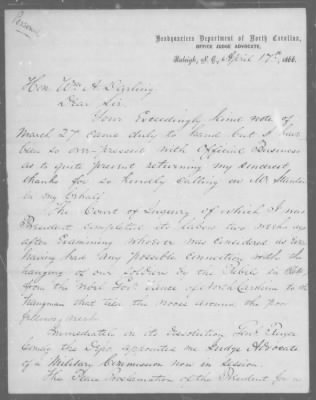 Personal
Headquarters Department of North Carolina,
OFFICE JUDGE ADVOCATE,
Raleigh, N. C., April 17th, 1866.
Hon. Wm A.
Dear Sir.
Your Exceedingly kind note of
March 27 came duly to hand but I have
been so over-pressed with Official Business
as to quite prevent returning my sincerest
thanks for so kindly calling on Mr Stanton
in my behalf.
The Court of Inquiry of which I was
President completed its labors two weeks ago
after Examining whoever was considered as Ever
having had any possible connection with the
hanging of our Soldiers by the Rebels in 1864,
from the Rebel Govr of North Carolina to the
Hangman that tied the noose around the poor
fellows necks.
Immediately on its dissolution Genl Ruger
Comdg the Dept appointed me Judge Advocate
of a Military Commission now in Session.
The Peace Proclamation of the President for a